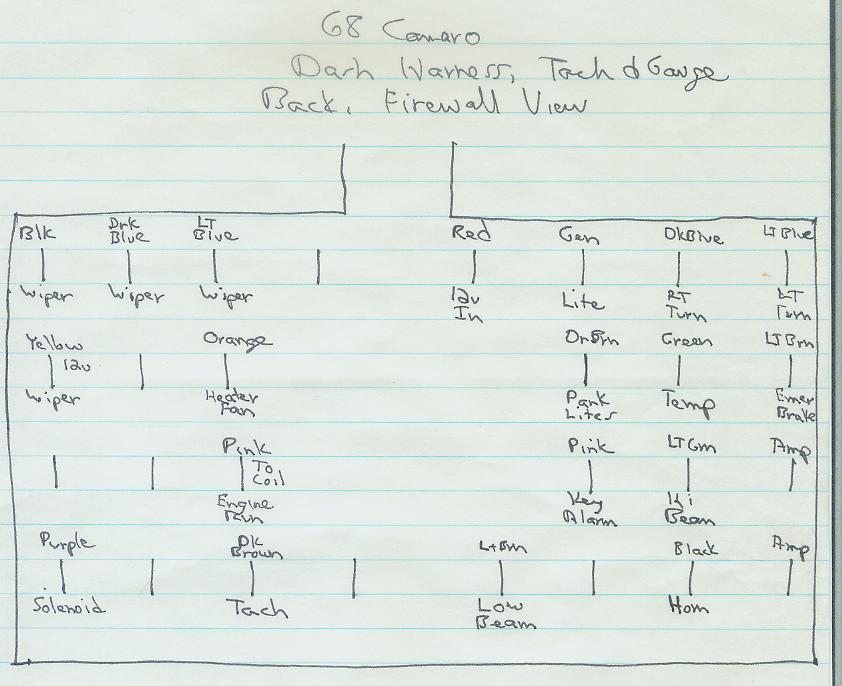 68 Camaro
Dash Harness, Tach & Gauge
Back, Firewall View
Blk Drk Blue LT Blue Red Gen DkBlue LTBlue
Wiper Wiper Wiper 12v In Lite RT Turn LT Turn
Yellow 12v Orange DrBrn Green LTBrn
Wiper Heater Fan Park Lites Temp Emer Brake
Pink To Coil Pink LTGrn Amp
Engine Run Key Alarm Hi Beam
Purple DK Brown LtBrn Black Amp
Solenoid Tach Low Beam Horn